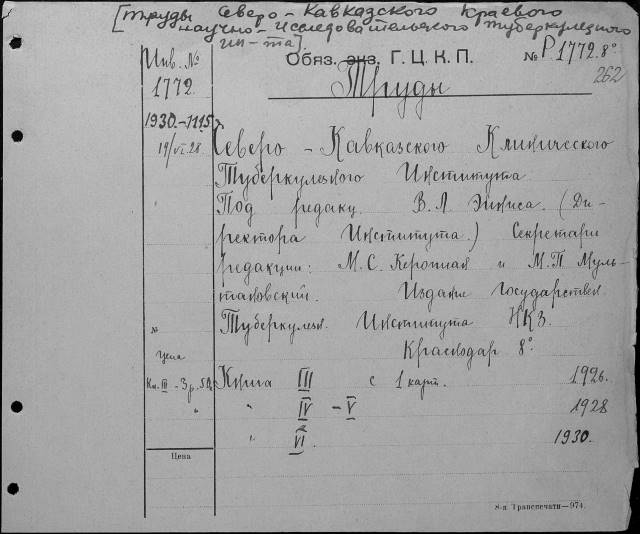 [Труды Северо-Кавказского Краевого
научно-исследовательского туберкулезного
ин-та].
Инв. №
1772
Обяз. экз. Г. Ц. К. П.
№ Р1772.8°
262
Труды
1930.-1115
19/VI.28
Северо-Кавказского Клинического
Туберкулезного Института
Под редакц. В. Л. Эйниса. (Ди-
ректора Института.) Секретари
редакции: М. С. и М. П. Муль-
тановский. Издание Государствен.
Туберкулезн. Института НКЗ.
№
Краснодар 8°.
Цена
Кн. III - 3 р. 50
Книга III с 1 карт. 1926.
" " IV - V 1928
" VI. 1930.
Цена
8-я Транспечати—974.